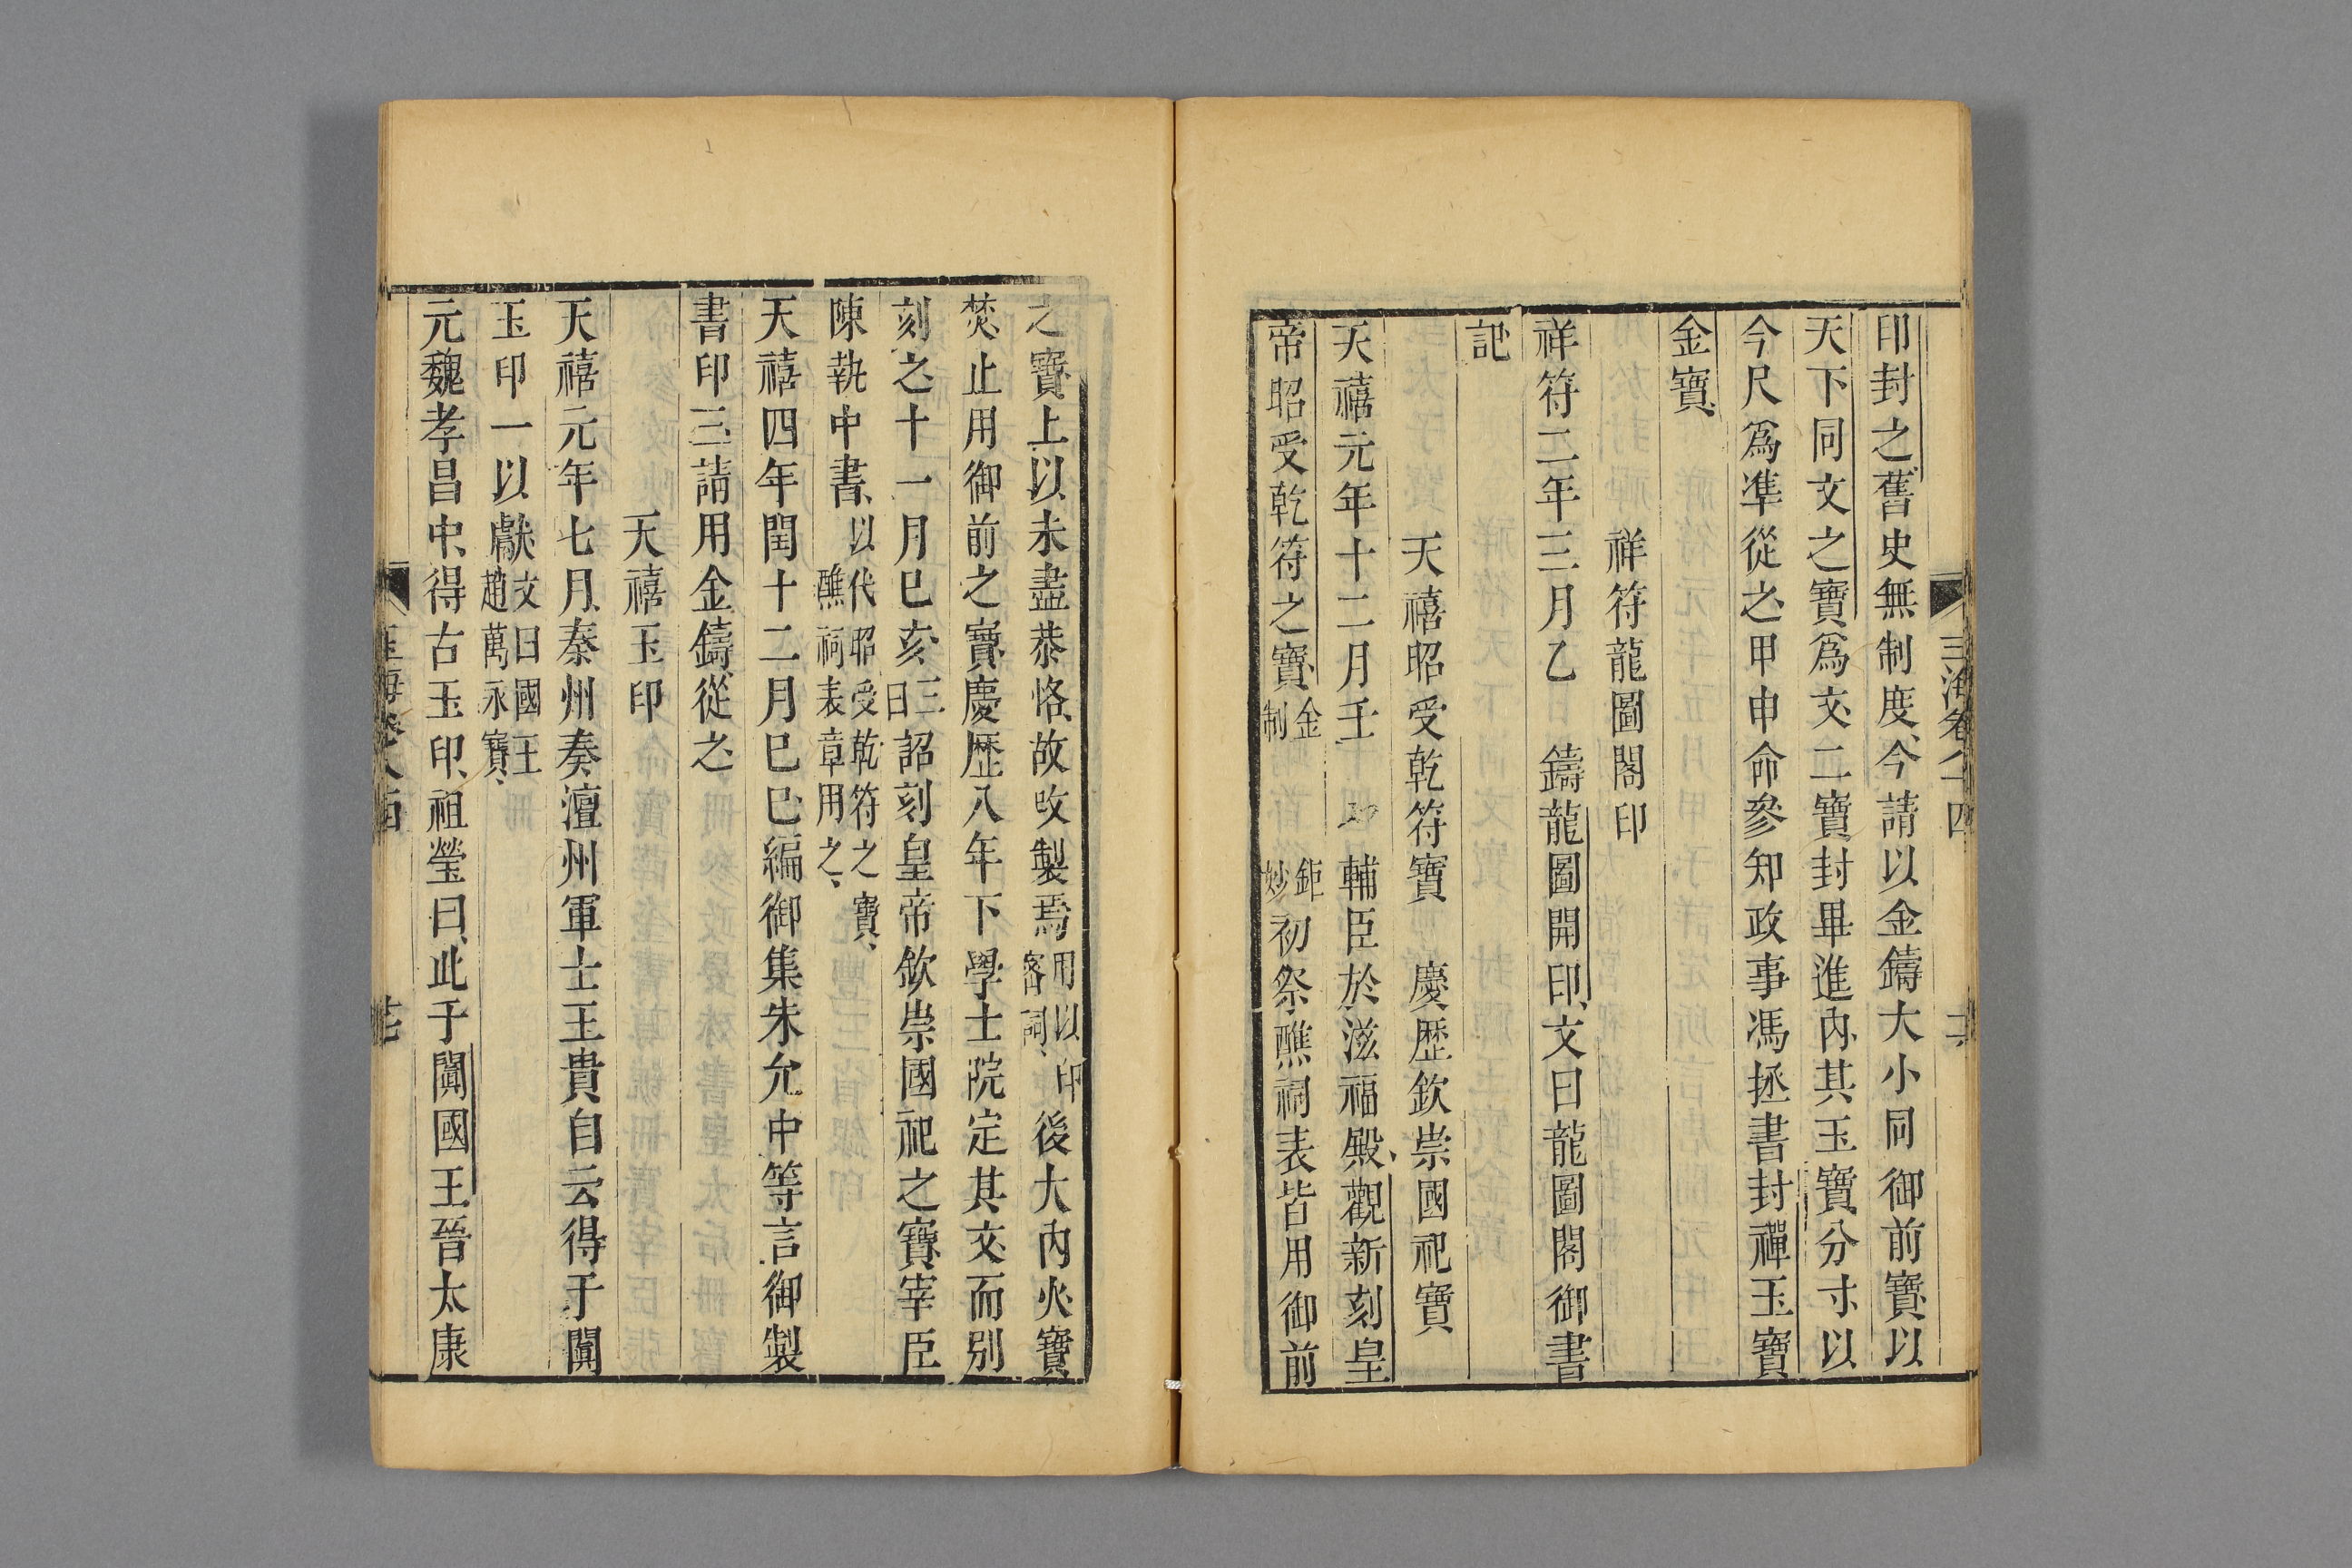 印封之舊史無制度今請以金鑄大小同御前寶以
天下同文之寶爲文二寶封畢進內其玉寶分寸以
今尺爲凖從之甲申命參知政事馮拯書封禪玉寶
金寶
祥符龍圖閣印
祥符二年三月乙 鑄龍圖開印文曰龍圖閣御書
記
天禧昭受乾符寶 慶歷欽崇國祀寶
天禧元年十二月壬 輔臣於滋福殿觀新刻皇
帝昭受乾符之寶金制 鉅妙初祭醮祠表皆用御前
之寶上以未盡恭恪故改製焉用以印密詞後大內火寶
焚止用御前之寶慶歷八年下學士院定其文而別
刻之十一月巳亥三日詔刻皇帝欽崇國祀之寶宰臣
陳執中書以代昭受乾符之寶醮祠表章用之
天禧四年閏十二月巳巳編御集朱允中等言御製
書印三請用金鑄從之
天禧玉印
天禧元年七月秦州奏澶州軍士王貴自云得于闐
玉印一以獻文曰國王趙萬永寶
元魏孝昌中得古玉印祖瑩曰此于闐國王晉太康